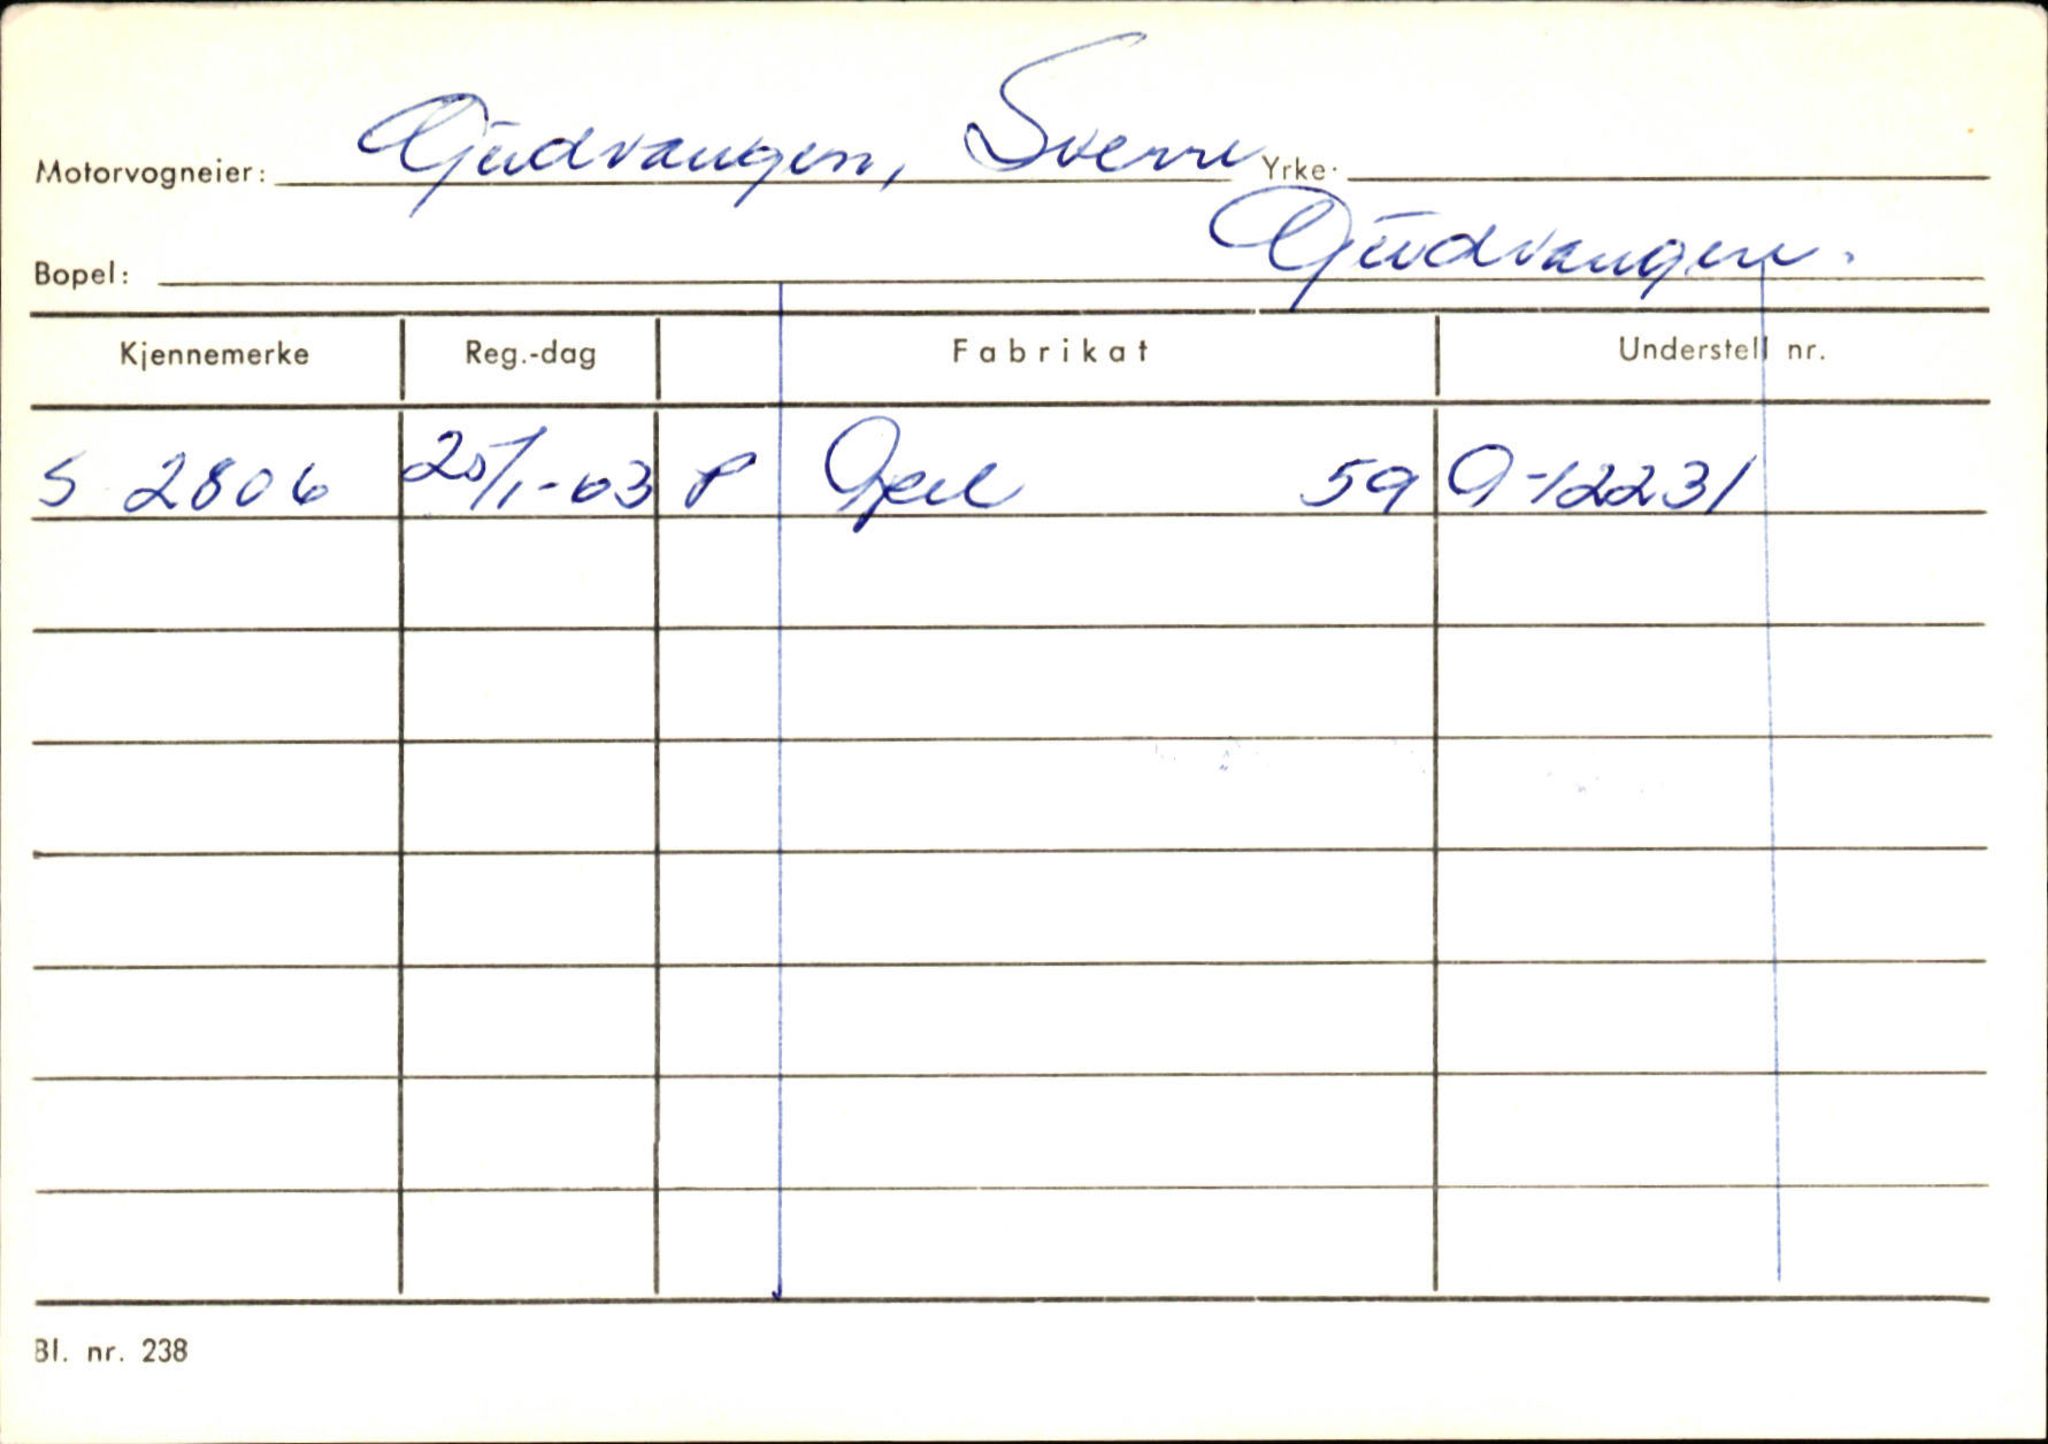 Motorvogneier: Gudvangen, Sverre Yrke:
Bopel: Gudvangen.
Kjennemerke Reg.-dag Fabrikat Understell nr.
S 2806 25/1-63 P Opel 59 O-12231
Bl. nr. 238